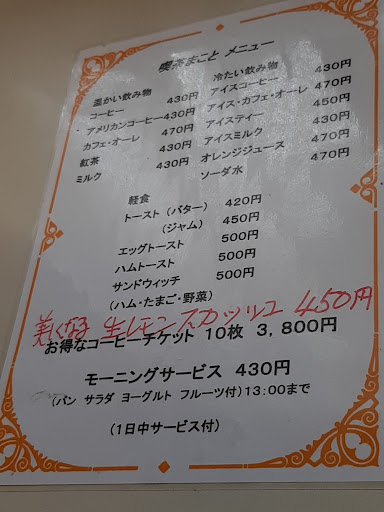 喫茶まこと メニュー
温かい飲み物
コーヒー 430円
アメリカンコーヒー430円
カフェ・オーレ 470円
紅茶 430円
ミルク 430円
冷たい飲み物
アイスコーヒー 430円
アイス・カフェ・オーレ 470円
アイスティー 450円
アイスミルク 430円
オレンジジュース 470円
ソーダ水 470円
軽食
トースト (バター) 420円
(ジャム) 450円
エッグトースト 500円
ハムトースト 500円
サンドウィッチ 500円
(ハム・たまご・野菜)
美しくなる 生レモンスカッシュ 450円
お得なコーヒーチケット 10枚 3,800円
モーニングサービス 430円
(パン サラダ ヨーグルト フルーツ付)13:00まで
(1日中サービス付)